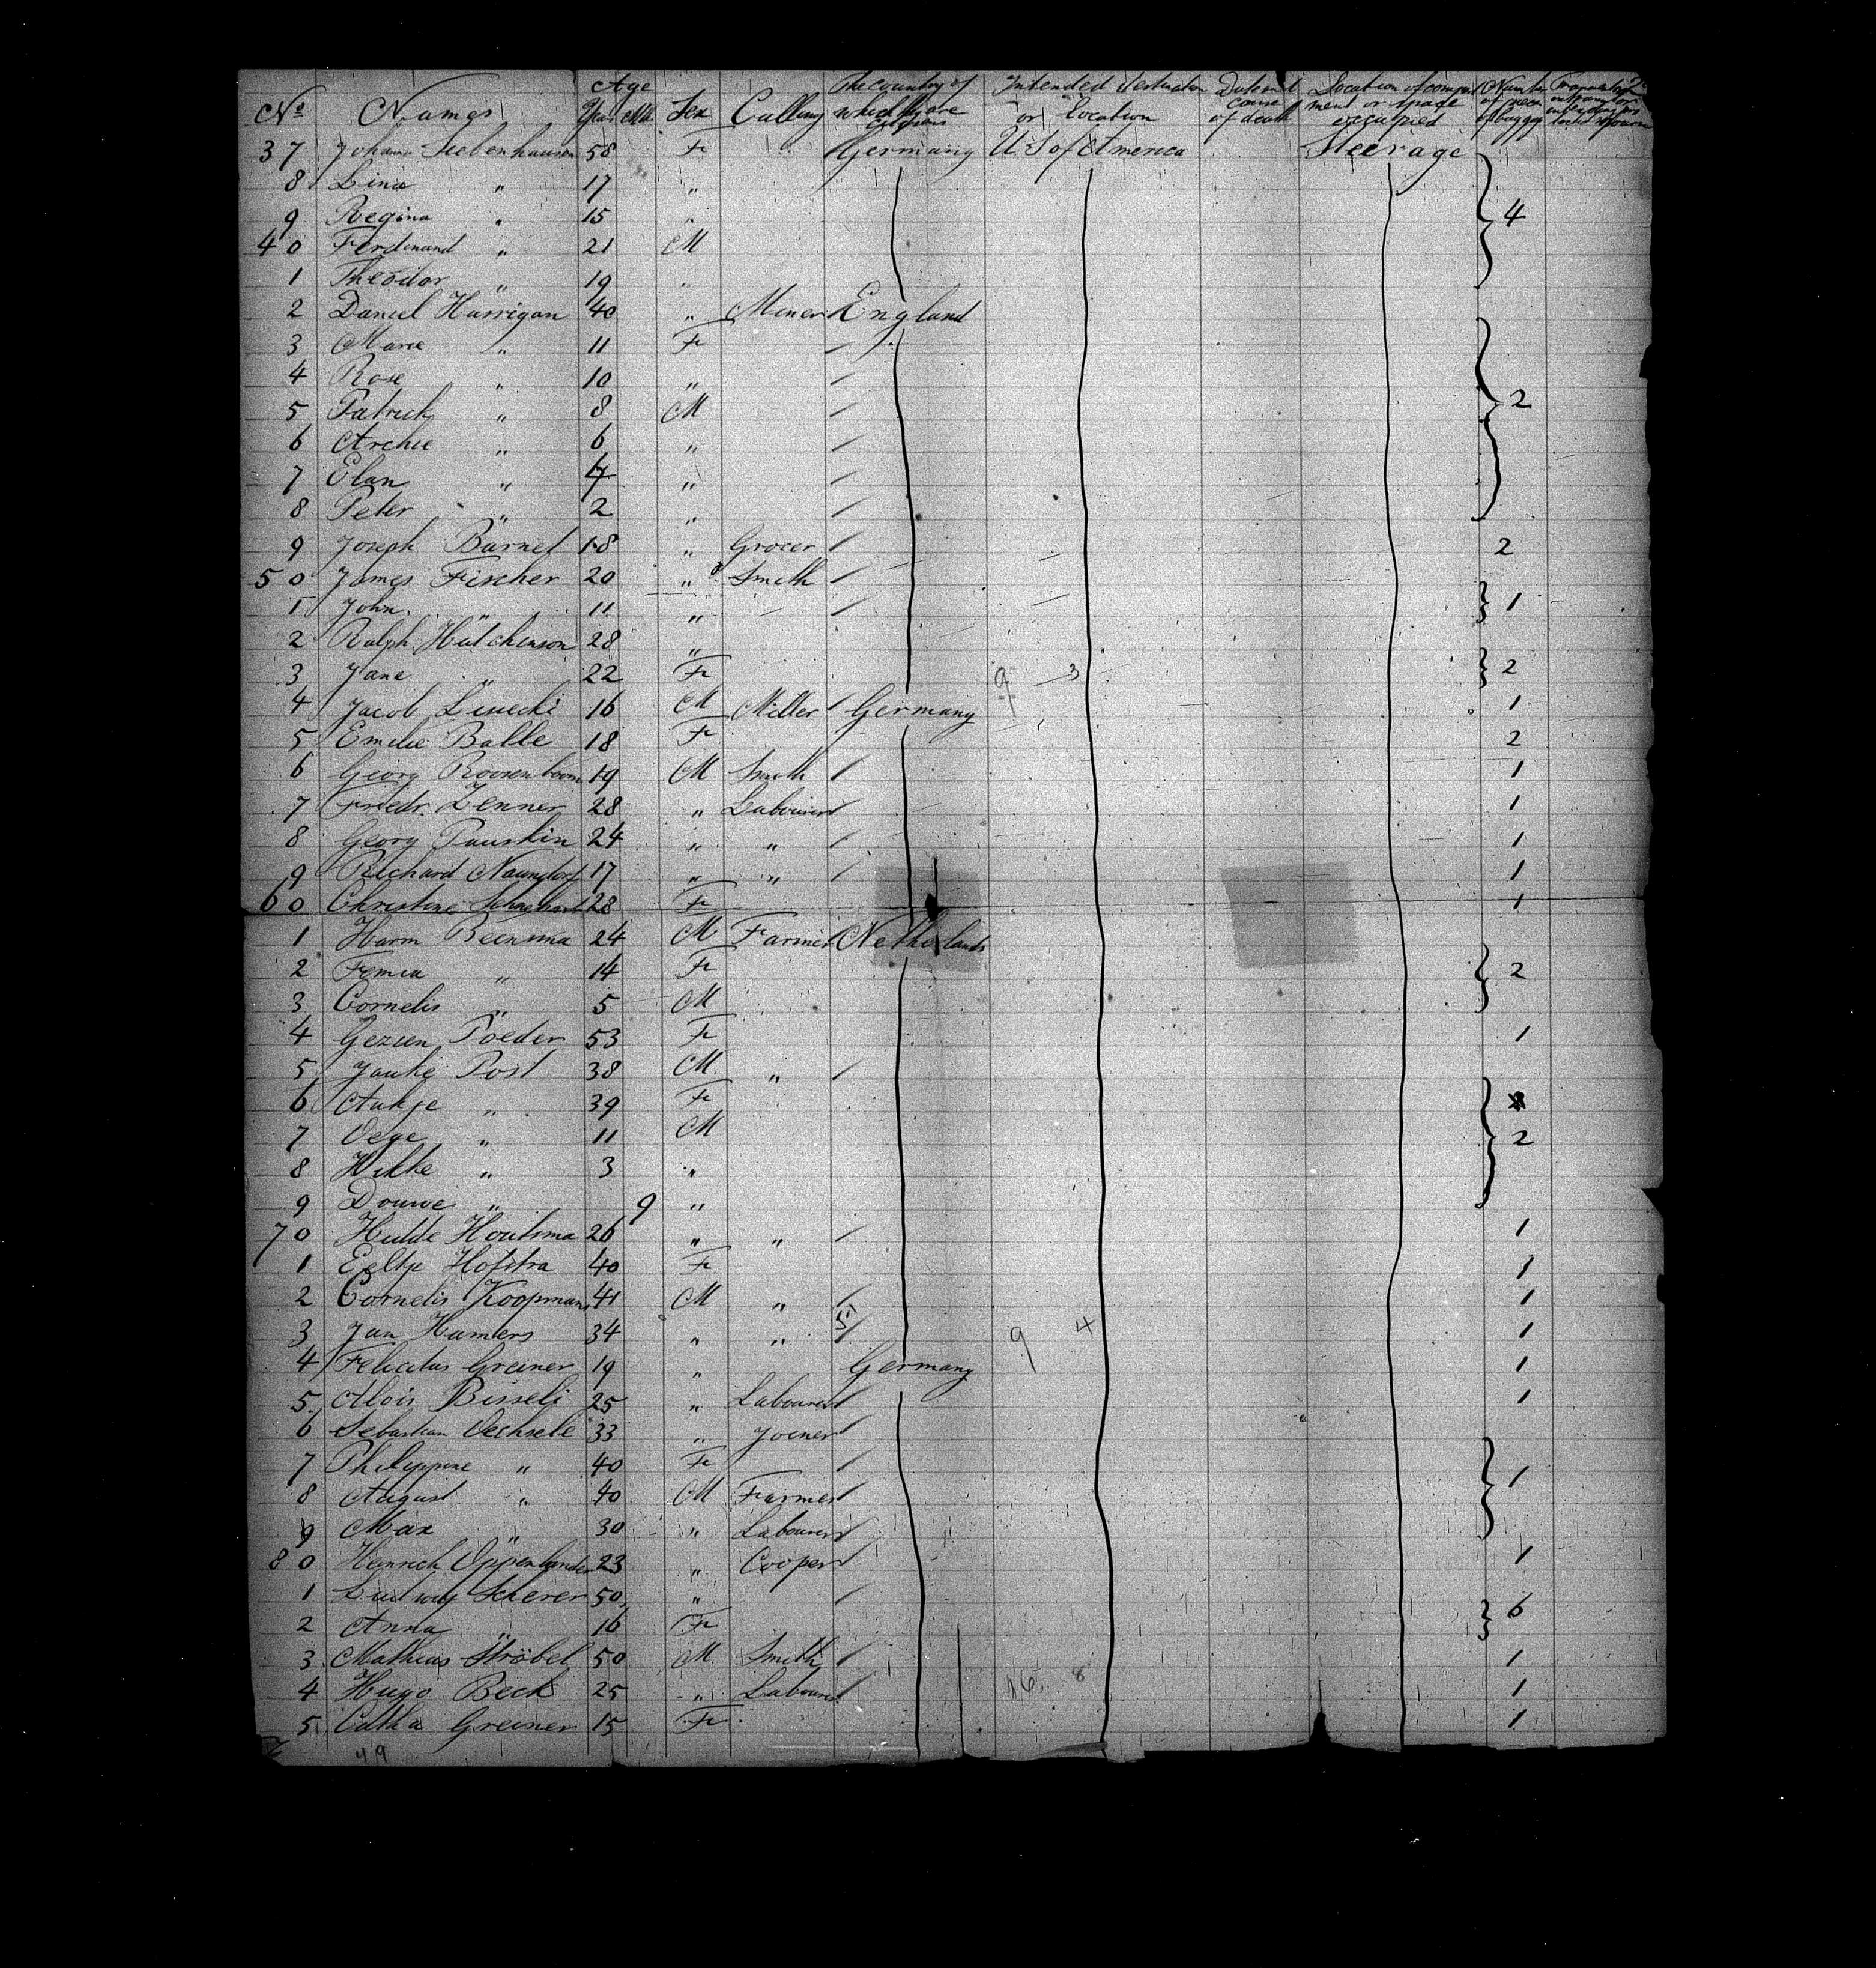 No Names Age Yrs. Mth. Sex Calling The country of which they are citizens Intended destination or location Date and cause of death Location of compartment or space occupied Number of pieces of baggage
37 Johanna Siebenhausen 58 F Germany U. S. of America Steerage
8 Lina " 17 " 4
9 Regina " 15 "
40 Ferdinand " 21 M
1 Theodor " 19 "
2 Daniel Harrigan 40 " Miner England
3 Marie " 11 F
4 Rose " 10 "
5 Patrick " 8 M 2
6 Archie " 6 "
7 Elan " 4 "
8 Peter " 2 "
9 Joseph Bürnet 18 " Grocer 2
50 James Fischer 20 " Smith
1 John " 11 " 1
2 Ralph Hütchinson 28 "
3 Jane " 22 F 9 3 2
4 Jacob 16 M Miller Germany 1
5 Emilie Balle 18 F 2
6 Georg Roosenboom 19 M Smith 1
7 Friedr. Zenner 28 " Labourer 1
8 Georg Pauskin 24 " " 1
9 Richard Naundorf 17 " " 1
60 Christine 28 F 1
1 Harm Beensma 24 M Farmer Netherlands
2 Femia " 14 F 2
3 Cornelis " 5 M
4 Gezien Poeder 53 F 1
5 Jauke Post 38 M "
6 Aukje " 39 F
7 Oege " 11 M 2
8 Hikke " 3 "
9 Douwe " 9 "
70 Hulde Houtsma 26 " " 1
1 Eeltje Hofstra 40 F 1
2 Cornelis Koopmans 41 M " 1
3 Jan Hamers 34 " " 5 9 4 1
4 Felicitas Greiner 19 " Germany 1
5 Alois Bisseli 25 " Labourer 1
6 Sebastian Oechsele 33 " Joiner
7 Philippine " 40 F 1
8 August " 40 M Farmer
9 Max " 30 " Labourer
80 Heinrich Oppenländer 23 " Cooper 1
1 Ludwig Scherer 50 "
2 Anna " 16 F 6
3 Mathias Ströbel 50 M Smith 1
4 Hugo Beck 25 " Labourer 16 8 1
5 Catha Greiner 15 F 1
49